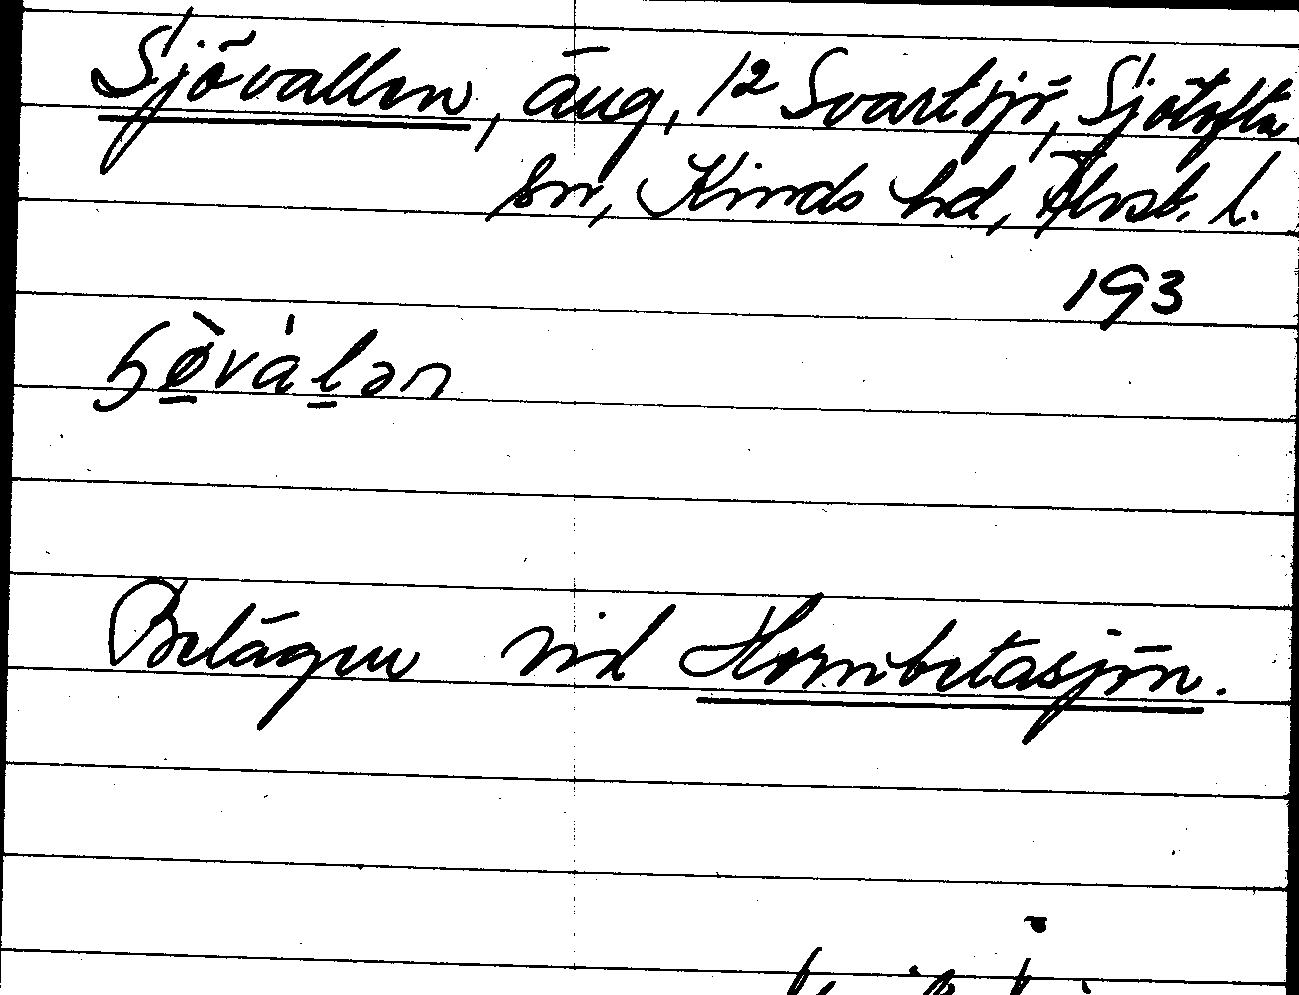 Sjövallen, äng, 12 Svartsjö, Sjötofta
sn, Kinds hd, Älvsb. l.
193
Belägen vid Hornbetasjön.